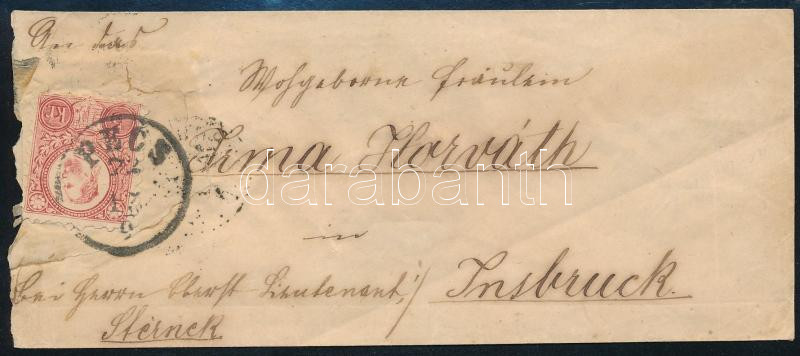 An das
Wohlgeborne Fräulein
Irma Horváth
in
Insbruck.
bei Herrn Oberst Lieutenant
Sterneck
KR
PÉCS
darabanth